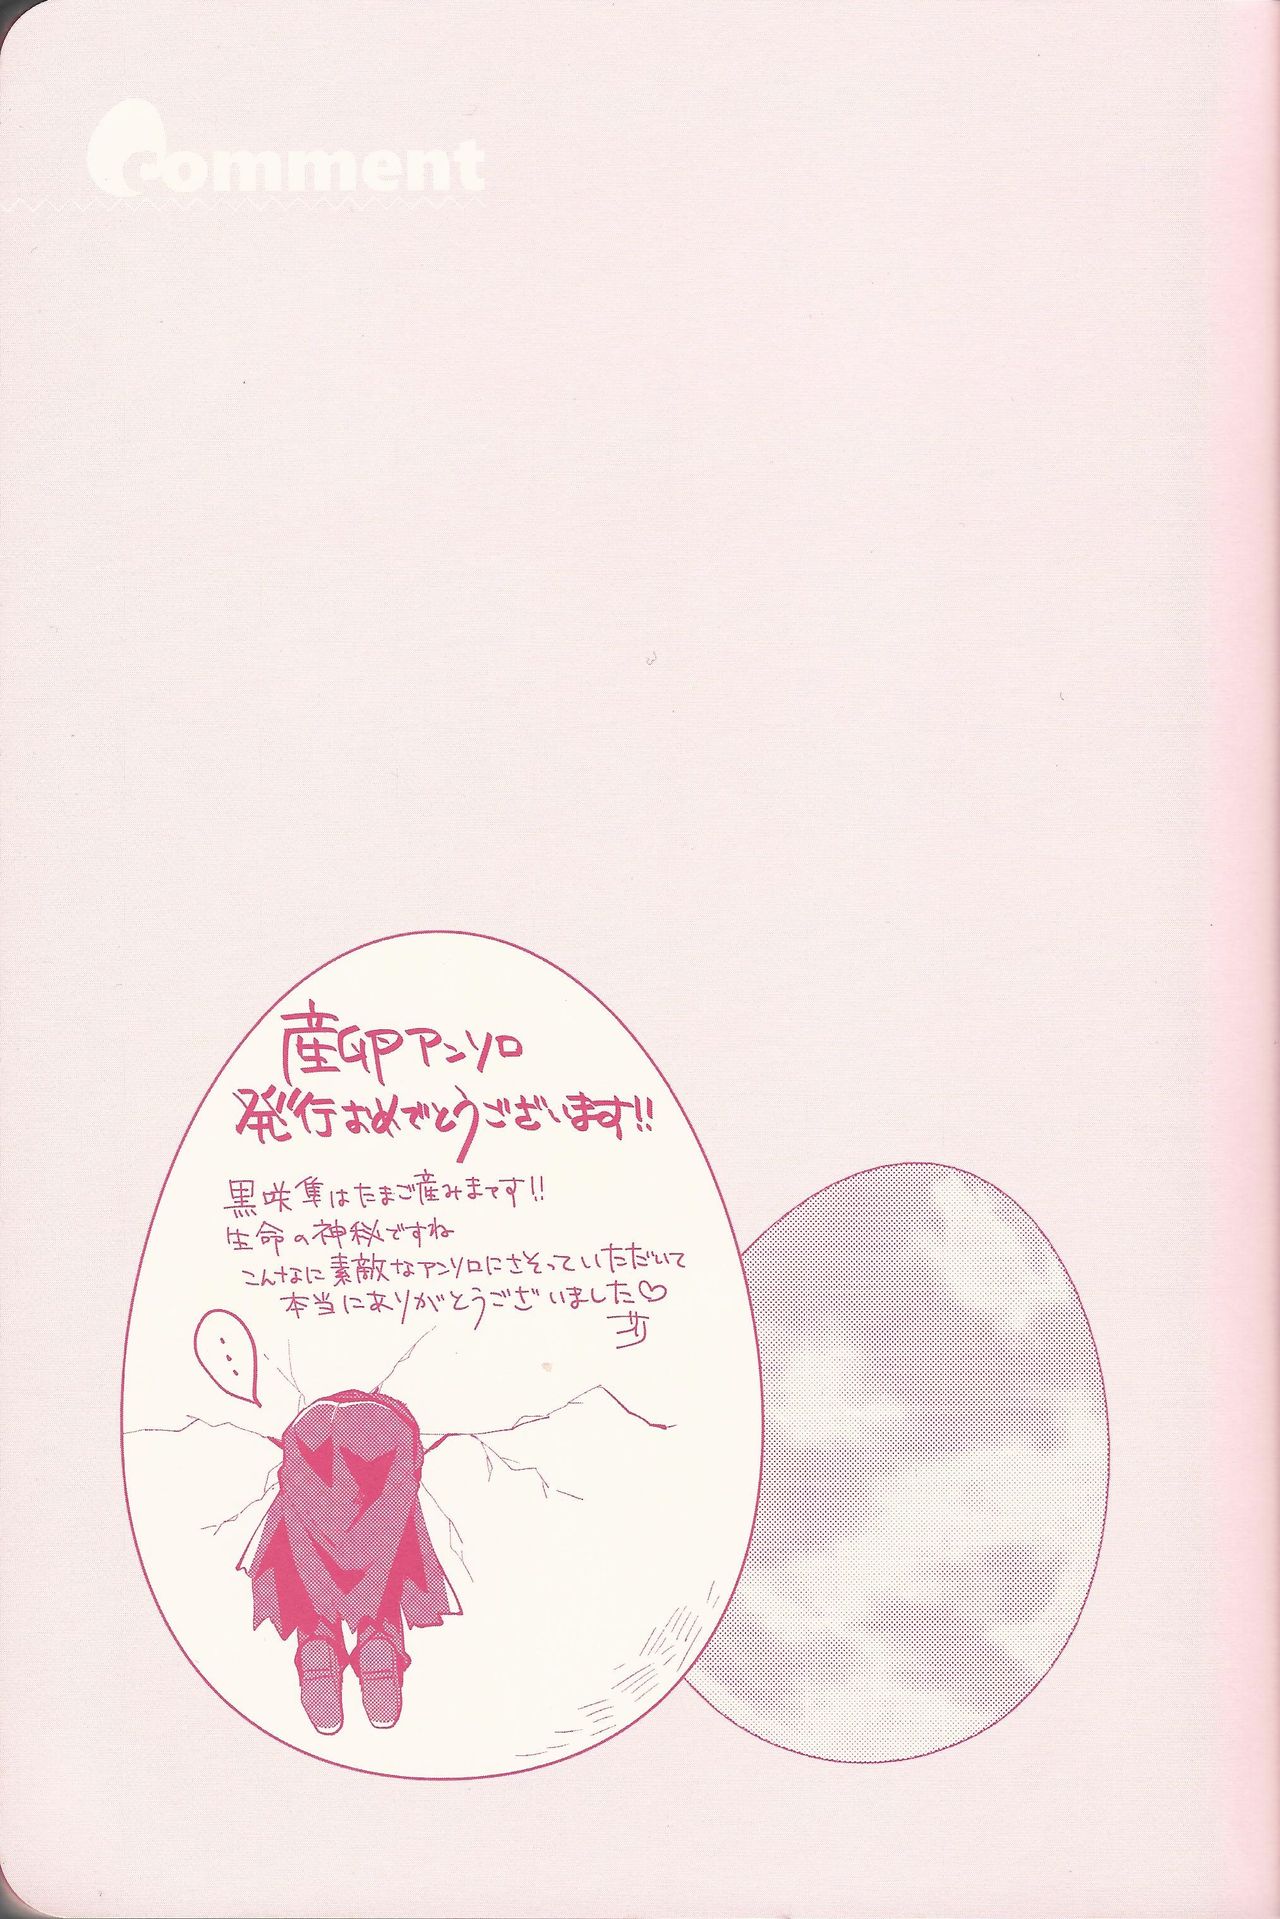 Comment
産卵アンソロ
発行おめでとうございます!!
黒咲隼はたまご産みまぁす!!
生命の神秘ですね
こんなに素敵なアンソロにさそっていただいて
本当にありがとうございました♡
ブリ
…